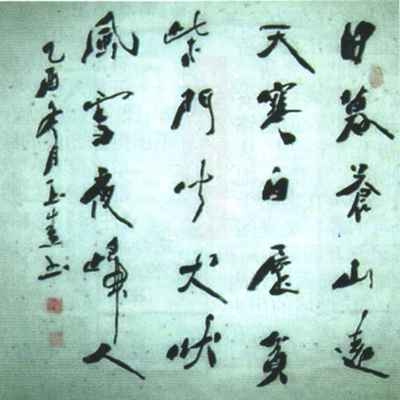 日暮蒼山遠
天寒白屋貧
柴門聞犬吠
風雪夜歸人
乙酉冬月玉書